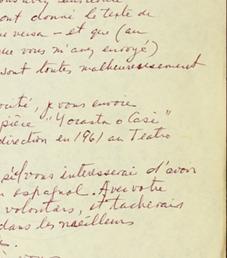 ont donné le texte de
vice versa – et que (au
que vous m'avez envoyé)
sont toutes malheureusement
outé, je vous envoie
pièce "Yocasta o Casi"
direction en 1961 au Teatro
s'il vous intéresserai d'avoir
n espagnol. Avec votre
volontiers, et tacherais
dans les meilleurs